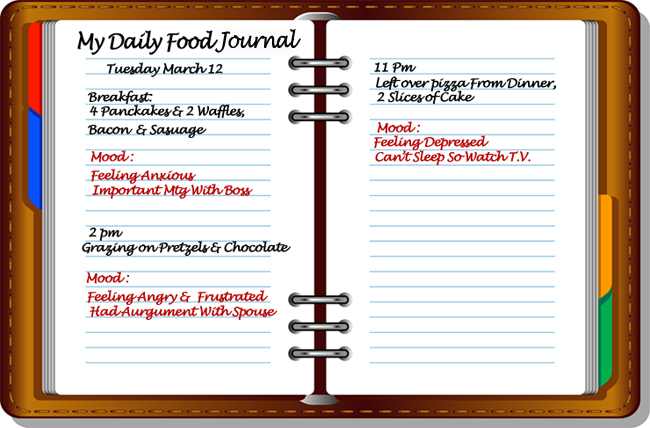 My Daily Food Journal
Tuesday March 12
Breakfast:
4 Panckakes & 2 Waffles,
Bacon & Sasuage
Mood :
Feeling Anxious
Important Mtg With Boss
2 pm
Grazing on Pretzels & Chocolate
Mood :
Feeling Angry & Frustrated
Had Aurgument With Spouse
11 Pm
Left over pizza From Dinner,
2 Slices of Cake
Mood :
Feeling Depressed
Can't Sleep So Watch T.V.